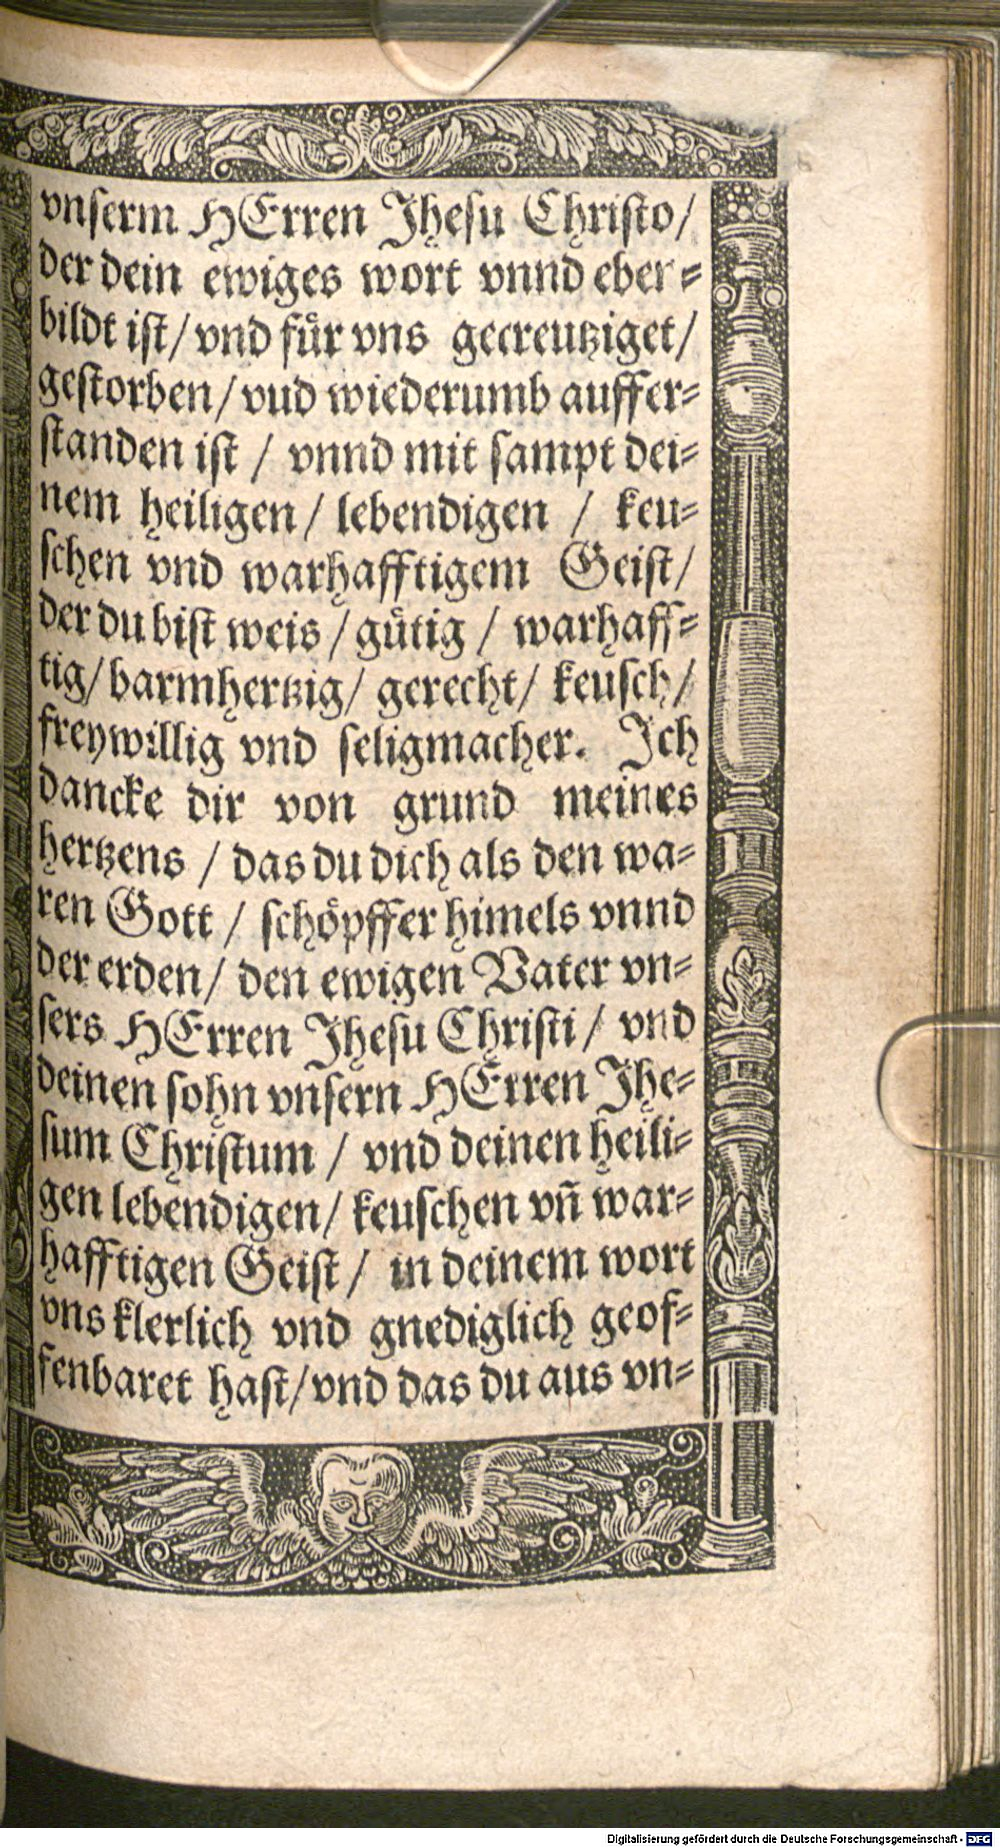 vnserm HErren Jhesu Christo/
der dein ewiges wort vnnd eber⸗
bildt ist/ vnd fuͤr vns gecreutziget/
gestorben/ vud wiederumb auffer⸗
standen ist / vnnd mit sampt dei⸗
nem heiligen/ lebendigen / keu⸗
schen vnd warhafftigem Geist/
der du bist weis /guͤtig / warhaff⸗
tig/ barmhertzig/ gerecht/ keusch/
freywillig vnd seligmacher. Jch
dancke dir von grund meines
hertzens / das du dich als den wa⸗
ren Gott / schoͤpffer himels vnnd
der erden/ den ewigen Vater vn⸗
sers HErren Jhesu Christi/ vnd
deinen sohn vnsern HErren Jhe⸗
sum Christum / vnd deinen heili⸗
gen lebendigen/ keuschen vn̄ war⸗
hafftigen Geist/ in deinem wort
vns klerlich vnd gnediglich geof⸗
fenbaret hast/vnd das du aus vn⸗
Digitalisierung gefördert durch die Deutsche Forschungsgemeinschaft - DFG